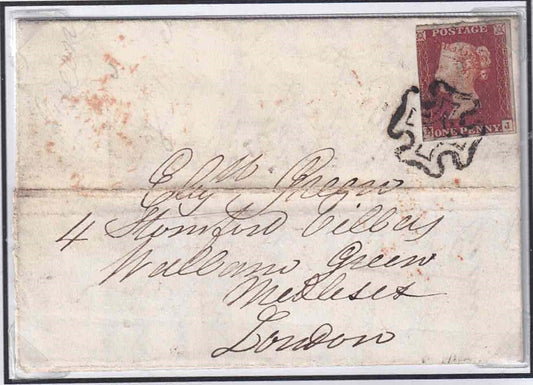 POSTAGE
ONE PENNY J
Green
4 Stamford Villas
Walham Green
Middlesex
London